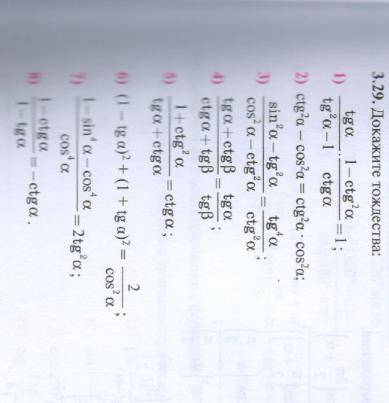 3.29. Докажите тождества:
1) tgα/(tg²α−1) · (1−ctg²α)/ctgα = 1;
2) ctg²α − cos²α = ctg²α · cos²α;
3) (sin²α − tg²α)/(cos²α − ctg²α) = tg⁴α/ctg²α;
4) (tgα + ctgβ)/(ctgα + tgβ) = tgα/tgβ;
5) (1 + ctg²α)/(tgα + ctgα) = ctgα;
6) (1 − tg α)² + (1 + tg α)² = 2/cos²α;
7) (1 − sin⁴α − cos⁴α)/cos⁴α = 2tg²α;
8) (1 − ctgα)/(1 − tgα) = −ctgα.